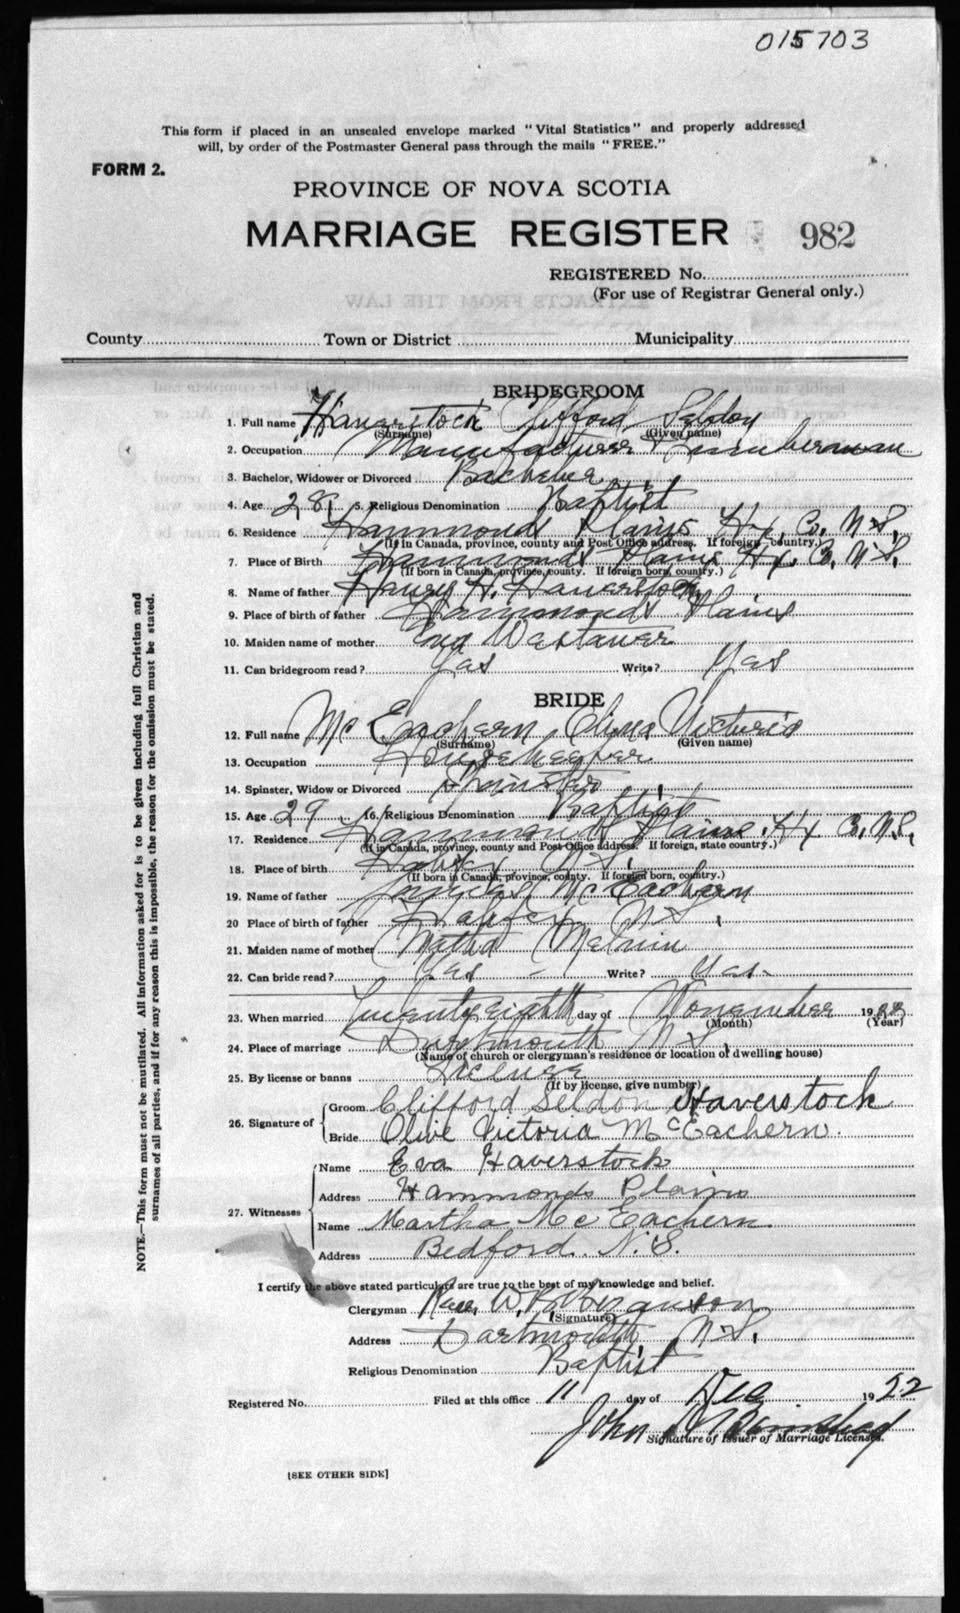 015703
This form if placed in an unsealed envelope marked "Vital Statistics" and properly addressed
will, by order of the Postmaster General pass through the mails "FREE."
FORM 2.
PROVINCE OF NOVA SCOTIA
MARRIAGE REGISTER 982
REGISTERED No.
(For use of Registrar General only.)
County Town or District Municipality
BRIDEGROOM
1. Full name Haverstock Clifford Seldon
(Surname) (Given name)
2. Occupation Manufacturer Lumberman
3. Bachelor, Widower or Divorced Bachelor
4. Age 28 5. Religious Denomination Baptist
6. Residence Hammonds Plains Hx. Co. N.S.
(If in Canada, province, county and Post Office address. If foreign country.)
7. Place of Birth Hammonds Plains Hx. Co. N.S.
(If born in Canada, province, county. If foreign born, country.)
8. Name of father Henry H. Haverstock
9. Place of birth of father Hammonds Plains
10. Maiden name of mother Westaver
11. Can bridegroom read? Yas Write? Yas
BRIDE
12. Full name McEachern Victoria
(Surname) (Given name)
13. Occupation Housekeeper
14. Spinster, Widow or Divorced Spinster
15. Age 29 16. Religious Denomination Baptist
17. Residence Hammonds Plains. Hx Co. N.S.
(If in Canada, province, county and Post Office address. If foreign, state country.)
18. Place of birth Halifax N.S.
(If born in Canada, province, county. If foreign born, country.)
19. Name of father McEachern
20 Place of birth of father Halifax N.S.
21. Maiden name of mother Melvin
22. Can bride read? Yes Write? Yas
23. When married Twenty eighth day of November 1922
(Month) (Year)
24. Place of marriage Dartmouth N.S.
(Name of church or clergyman's residence or location of dwelling house)
25. By license or banns License
(If by license, give number)
26. Signature of Groom Clifford Seldon Haverstock
Bride Olive Victoria McEachern.
27. Witnesses Name Eva Haverstock
Address Hammonds Plains
Name Martha McEachern
Address Bedford. N.S.
I certify the above stated particulars are true to the best of my knowledge and belief.
Clergyman Rev. W.
(Signature)
Address Dartmouth N.S.
Religious Denomination Baptist
Registered No. Filed at this office 11 day of Dec 1922
John
Signature of Issuer of Marriage Licenses.
[SEE OTHER SIDE]
NOTE.—This form must not be mutilated. All information asked for is to be given including full Christian and
surnames of all parties, and if for any reason this is impossible, the reason for the omission must be stated.